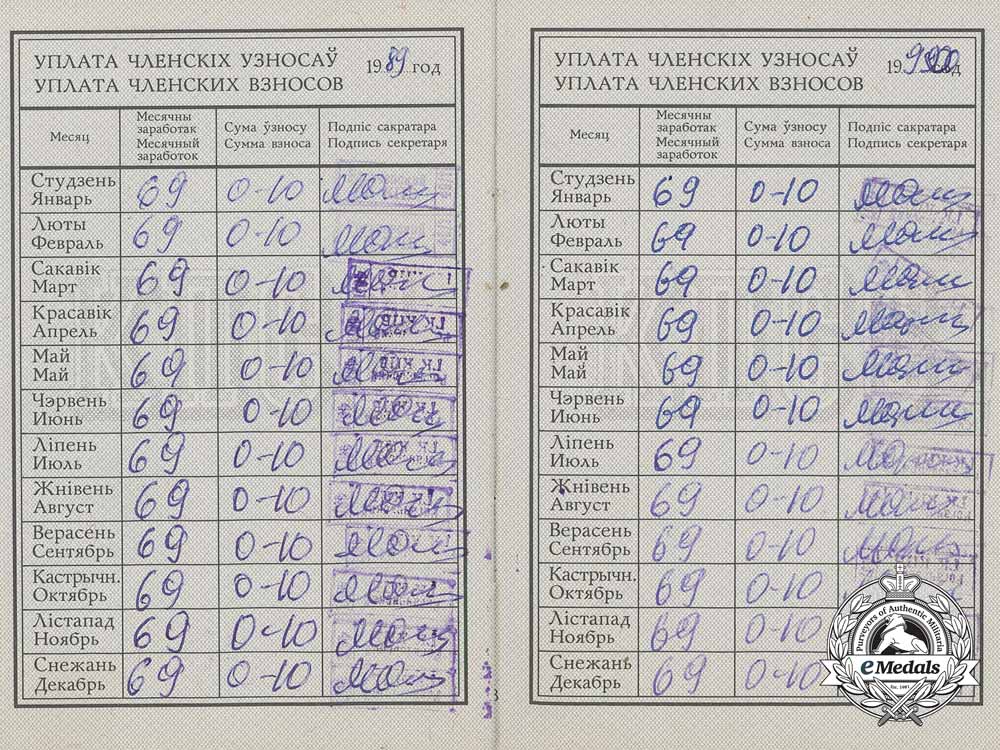 УПЛАТА ЧЛЕНСКІХ УЗНОСАЎ
УПЛАТА ЧЛЕНСКИХ ВЗНОСОВ
1989 год
Месяц
Месячны заработак
Месячный заработок
Сума ўзносу
Сумма взноса
Подпіс сакратара
Подпись секретаря
Студзень
Январь 69 0-10
Люты
Февраль 69 0-10
Сакавік
Март 69 0-10
Красавік
Апрель 69 0-10
Май
Май 69 0-10
Чэрвень
Июнь 69 0-10
Ліпень
Июль 69 0-10
Жнівень
Август 69 0-10
Верасень
Сентябрь 69 0-10
Кастрычн.
Октябрь 69 0-10
Лістапад
Ноябрь 69 0-10
Снежань
Декабрь 69 0-10
УПЛАТА ЧЛЕНСКІХ УЗНОСАЎ
УПЛАТА ЧЛЕНСКИХ ВЗНОСОВ
Месяц
Месячны заработак
Месячный заработок
Сума ўзносу
Сумма взноса
Подпіс сакратара
Подпись секретаря
Студзень
Январь 69 0-10
Люты
Февраль 69 0-10
Сакавік
Март 69 0-10
Красавік
Апрель 69 0-10
Май
Май 69 0-10
Чэрвень
Июнь 69 0-10
Ліпень
Июль 69 0-10
Жнівень
Август 69 0-10
Верасень
Сентябрь 69 0-10
Кастрычн.
Октябрь 69 0-10
Лістапад
Ноябрь 69 0-10
Снежань
Декабрь 69 0-10
Purveyors of Authentic Militaria
eMedals